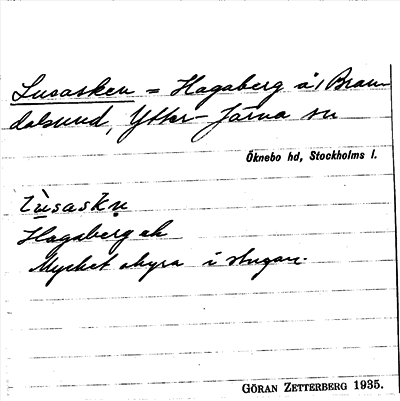 Lusasken = Hagaberg å/ Bran-
dalsund, Ytter-Järna sn
Öknebo hd, Stockholms l.
lùsaskn̥
Hagaberg
Mycket ohyra i stugan.
GÖRAN ZETTERBERG 1935.